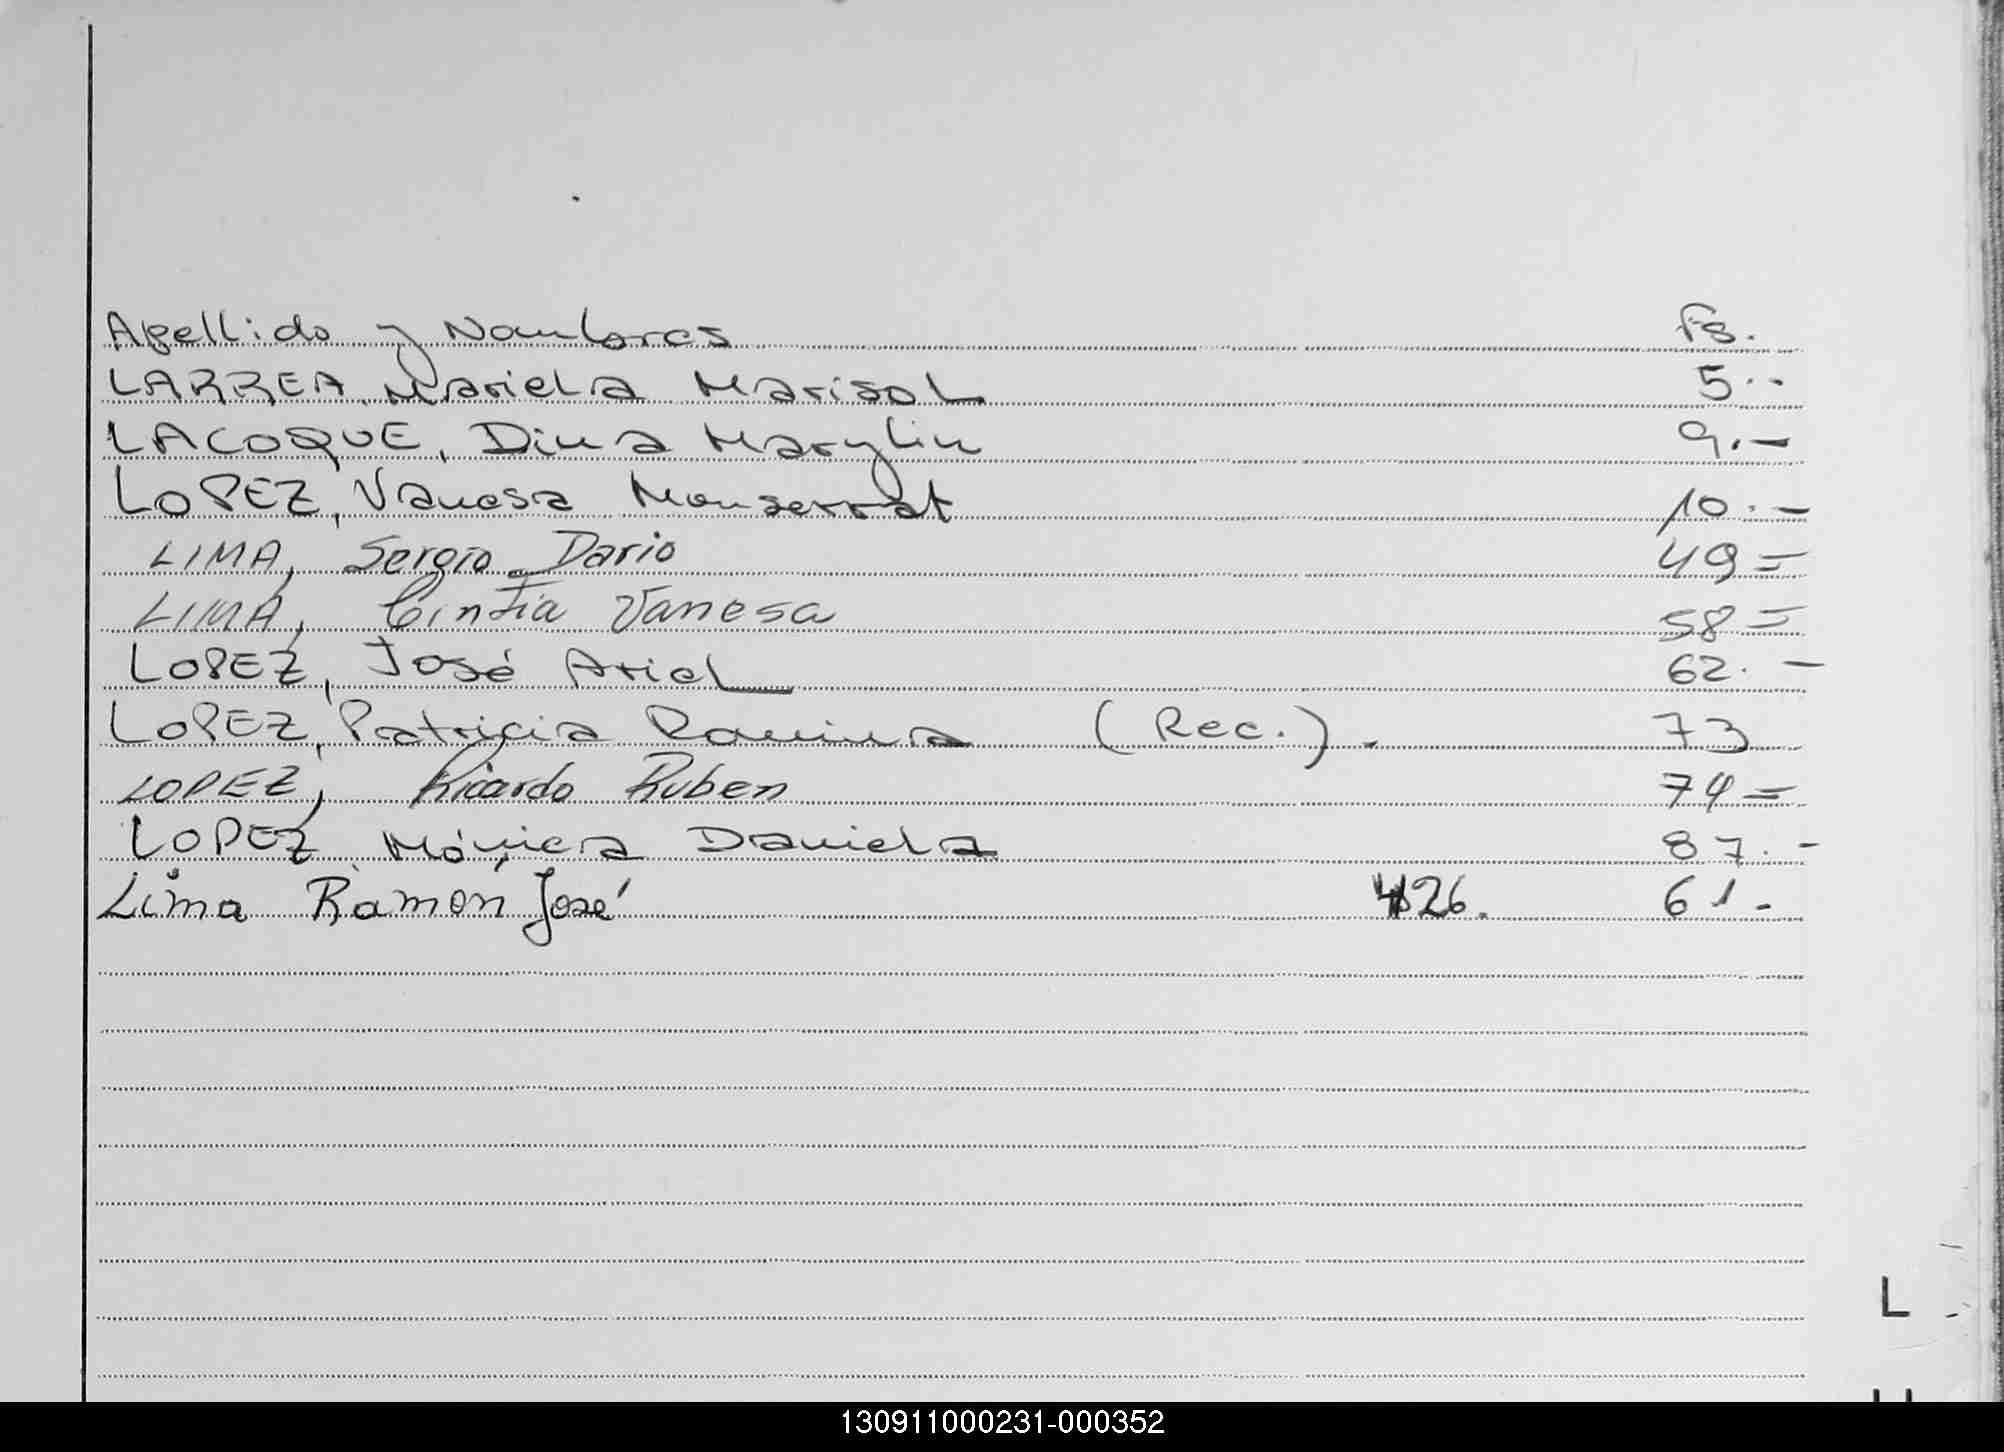 Apellido y Nombres Fs.
LARREA, Mariela Marisol 5.-
LACOQUE, Dina Marylin 9.-
LOPEZ, Vanesa Monserrat 10.-
LIMA, Sergio Dario 49=
LIMA, Cintia Vanesa 58=
LOPEZ, José Ariel 62.-
LOPEZ, Patricia Romina (Rec.). 73
LOPEZ, Ricardo Ruben 74=
LOPEZ, Mónica Daniela 87.-
Lima Ramón José 26. 61-
L
130911000231-000352